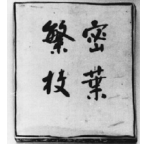 密葉
繁枝